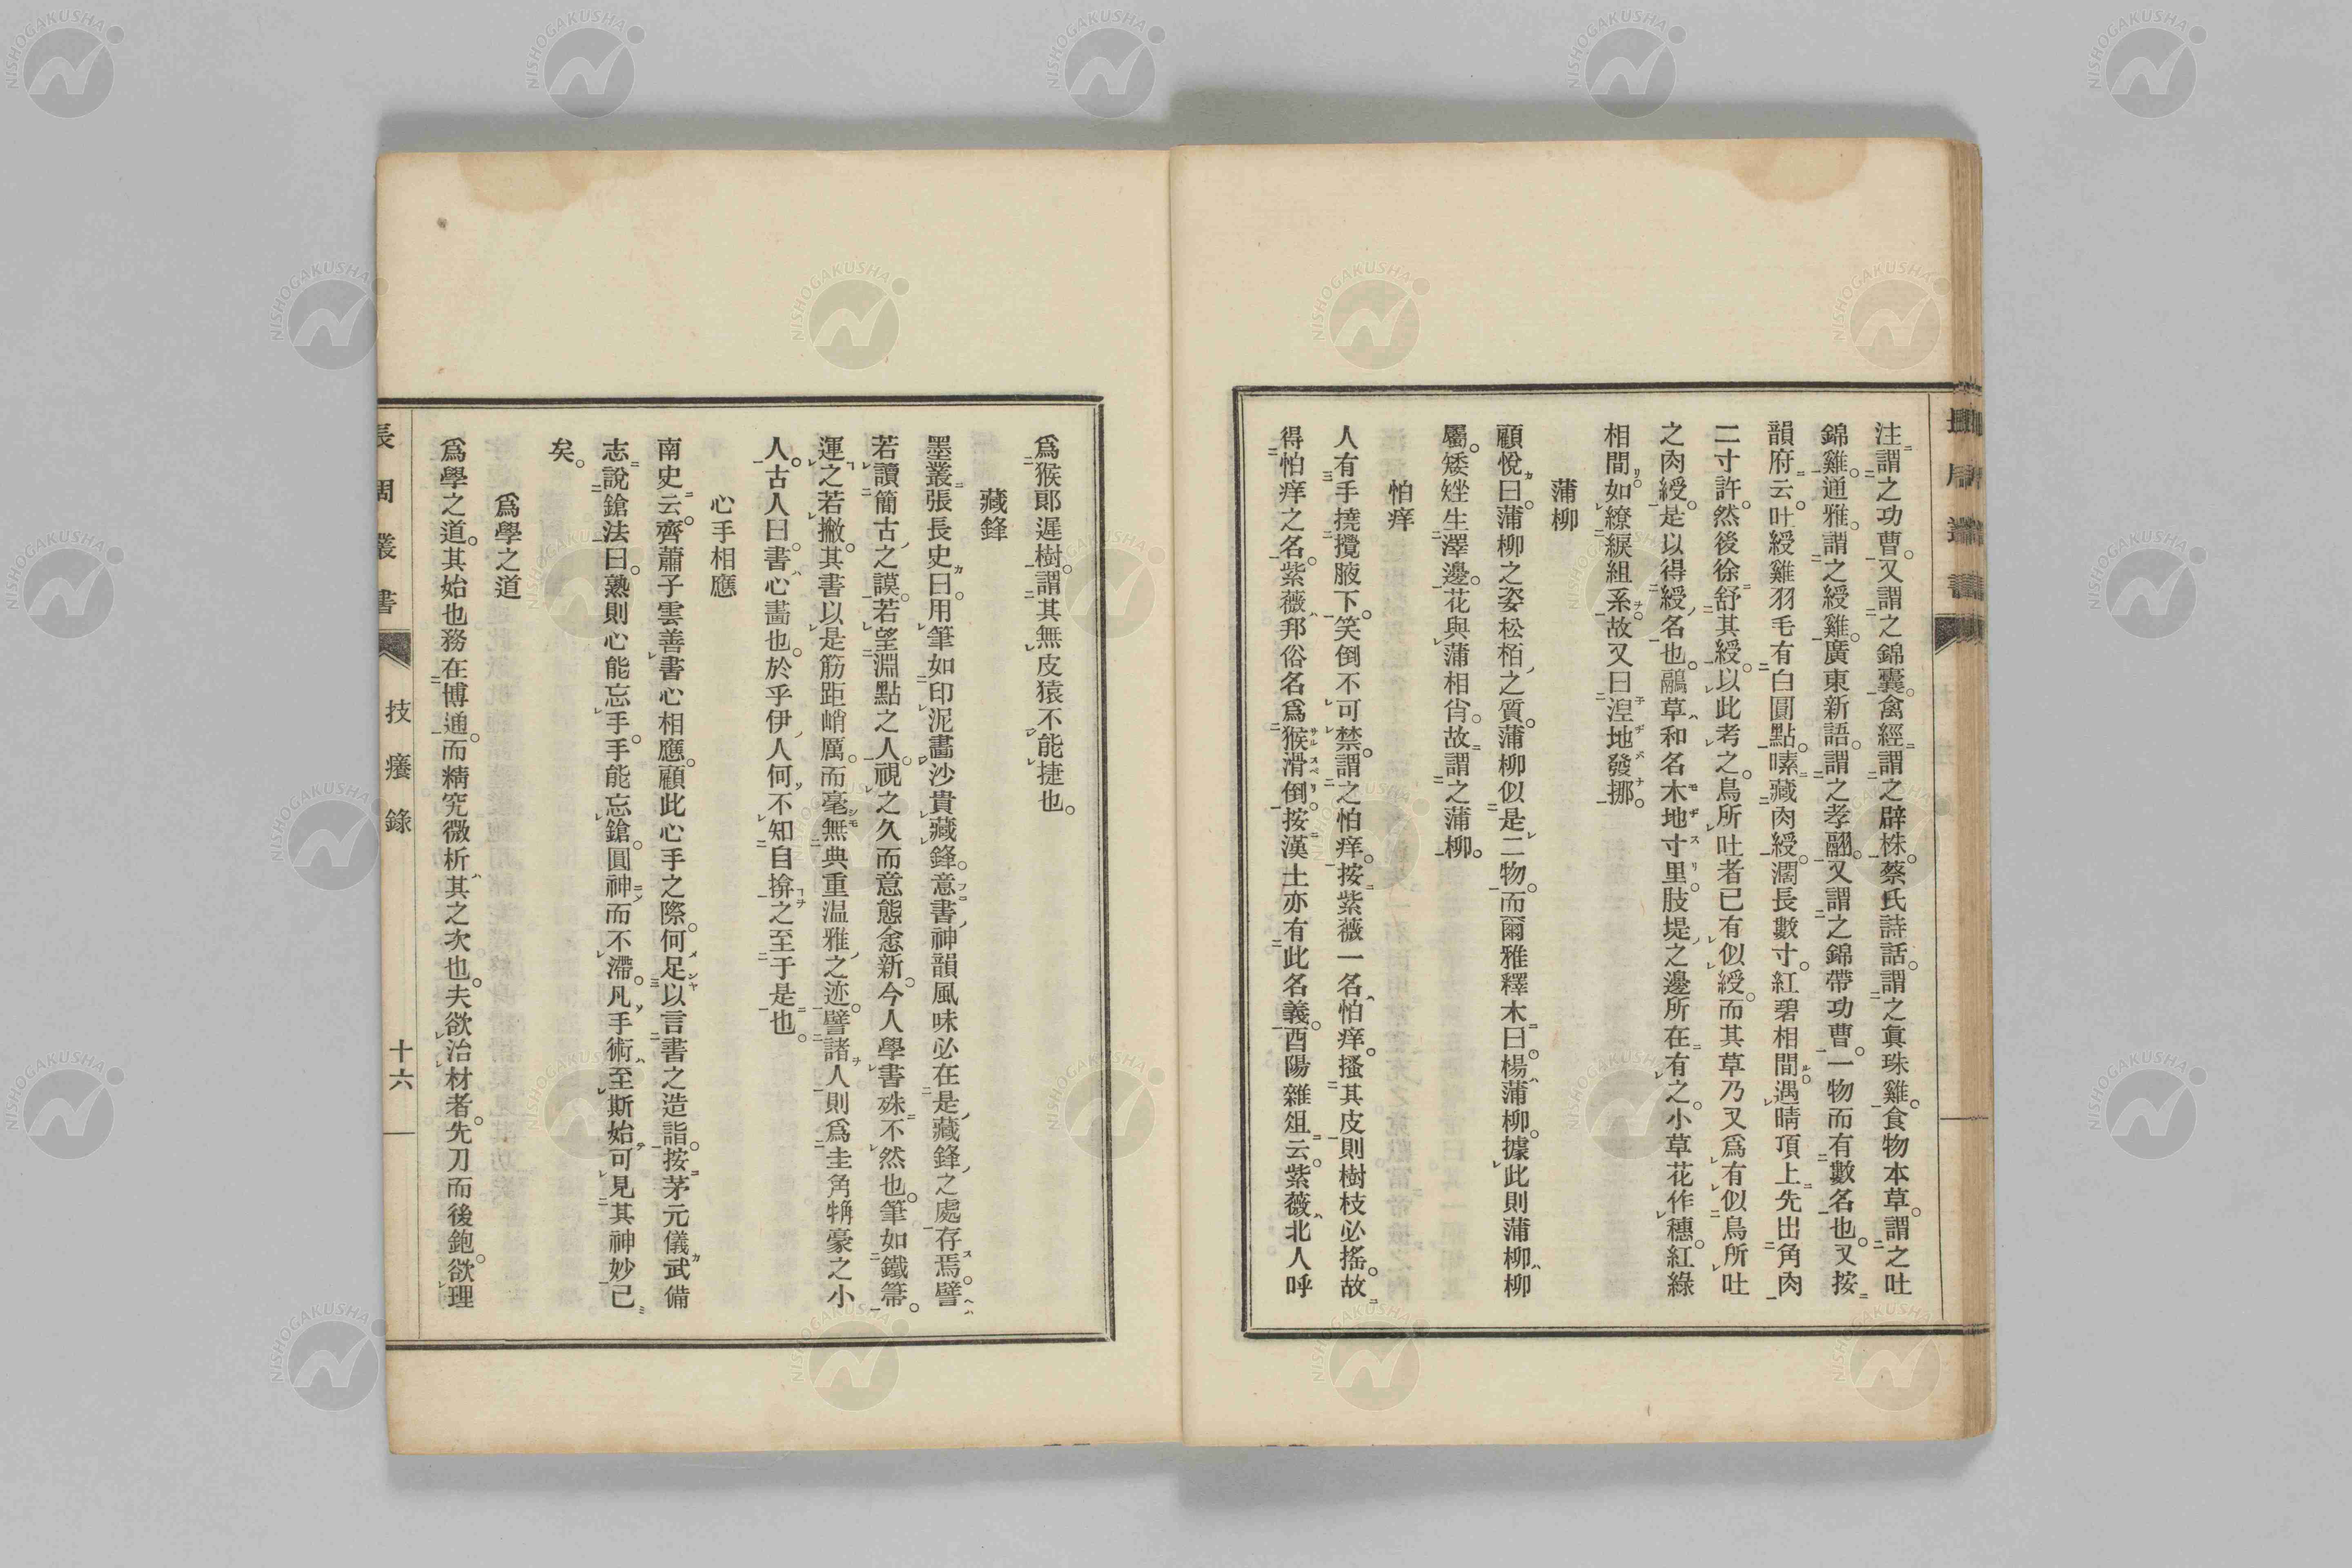 注謂之功曹。又謂之錦囊。禽經謂之辟株。蔡氏詩話。謂之眞珠雞。食物本草。謂之吐
錦雞。通雅。謂之綬雞。廣東新語。謂之孝鷊。又謂之錦帶功曹。一物而有數名也。又按
韻府云。吐綬雞羽毛有白圓點。嗉藏肉綬。濶長數寸。紅碧相間。遇晴頂上先出角肉
二寸許。然後徐舒其綬。以此考之。鳥所吐者已有似綬。而其草乃又爲有似鳥所吐
之肉綬。是以得綬名也。鷊草和名木地寸里。肢堤之邊所在有之。小草花作穗。紅綠
相間。如繚綟組系。故又曰湼地發挪。
蒲柳
顧悅曰。蒲柳之姿松栢之質。蒲柳似是二物。而爾雅釋木曰。楊蒲柳。據此則蒲柳柳
屬。矮矬生澤邊。花與蒲相肖。故謂之蒲柳。
怕痒
人有手撓攪腋下。笑倒不可禁。謂之怕痒。按紫薇一名怕痒。搔其皮則樹枝必搖。故
得怕痒之名。紫薇邦俗名爲猴滑倒。按漢土亦有此名義。酉陽雜俎云。紫薇北人呼
爲猴郎遅樹。謂其無皮猿不能捷也。
藏鋒
墨叢張長史曰。用筆如印泥畵沙貴藏鋒。意書神韻風味必在是藏鋒之處存焉。譬
若讀簡古之謨。若望淵點之人。視之久而意態悆新。今人學書殊不然也。筆如鐵箒。
運之若撇。其書以是筋距峭厲。而毫無典重温雅之迹。譬諸人則爲圭角犄豪之小
人。古人曰。書心畵也。於乎伊人何不知自揜之至于是也。
心手相應
南史云。齊蕭子雲善書心相應。顧此心手之際。何足以言書之造詣。按茅元儀武備
志說鎗法曰。熟則心能忘手。手能忘鎗。圓神而不滯。凡手術至斯始可見其神妙已
矣。
爲學之道
爲學之道。其始也務在博通。而精究微析其之次也。夫欲治材者。先刀而後鉋。欲理
長周叢書
技癢錄
十六